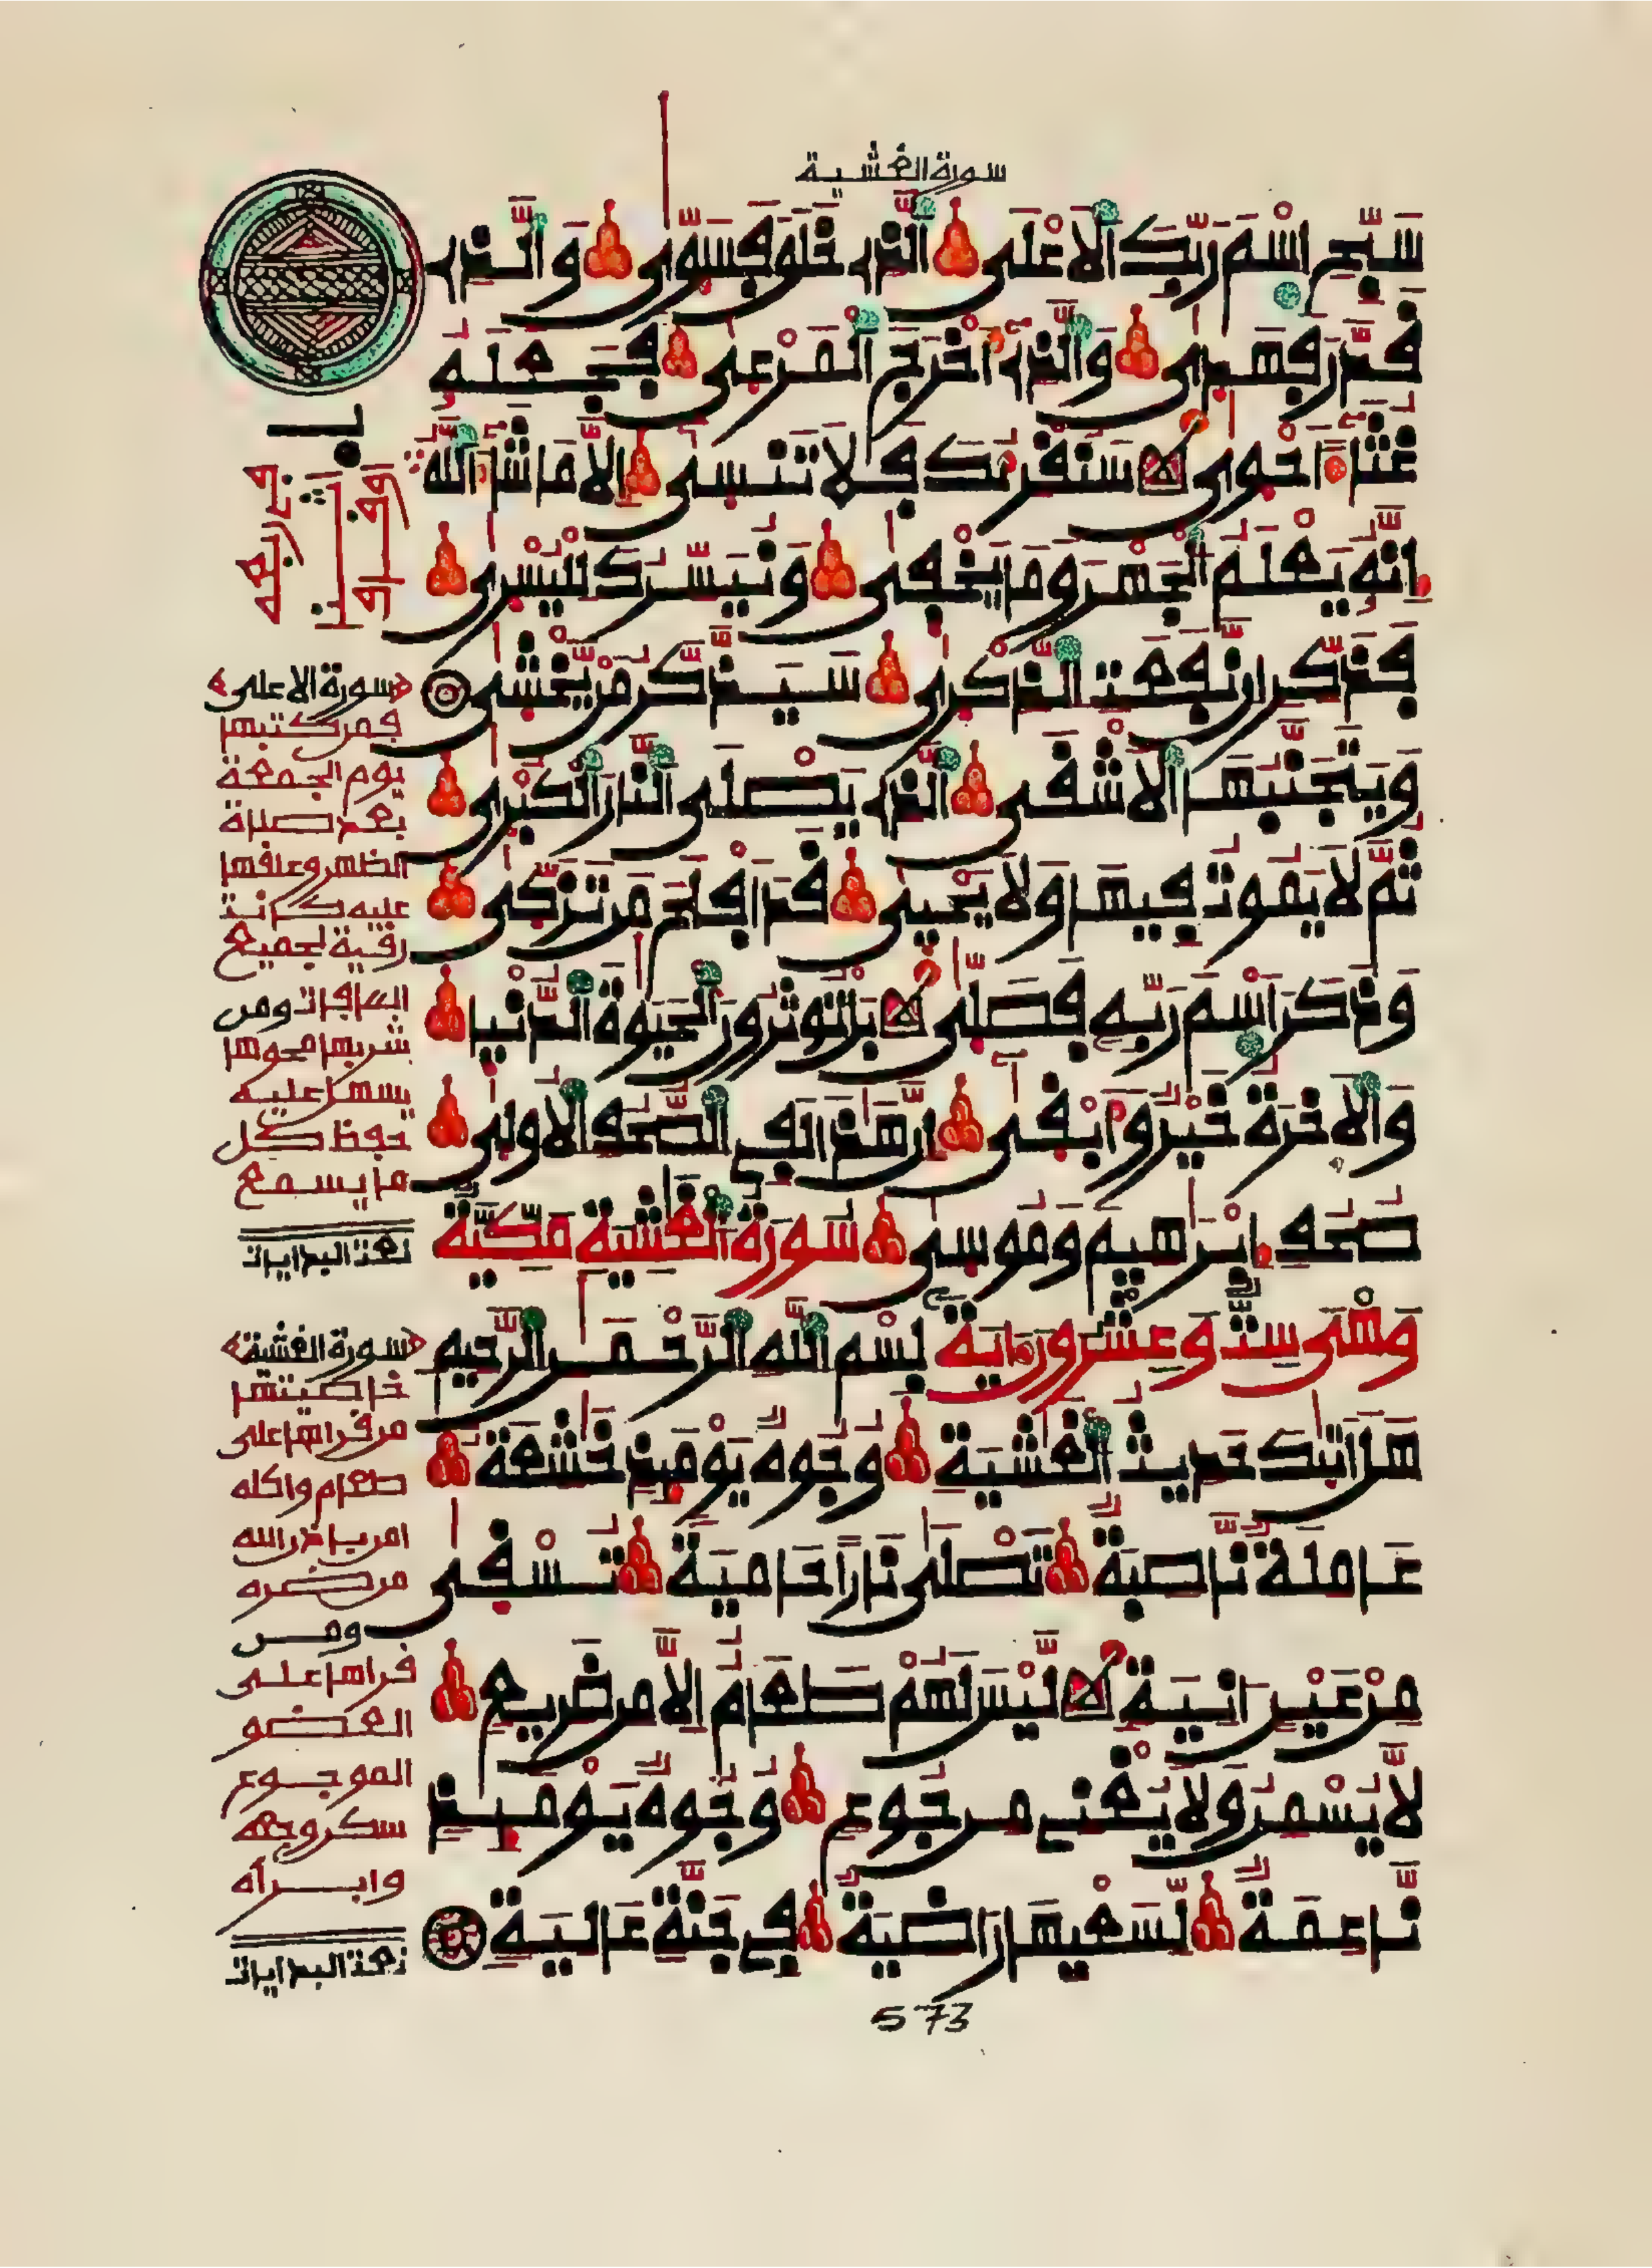 سورة الغشية
سَبِّحِ اِسْمَ رَبِّكَ اَلَاعْلَى اَلذِے خَلَقَ فَسَوّٜىٰ وَالذِے
قَدَّرَ فَهَدٜىٰ وَالذِےٓ أَخْرَجَ اَلْمَرْعٜىٰ فَجَعَلَهُۥ
غُثَآءً اَحْوٜىٰ سَنُقْرِئُكَ فَلَا تَنسٜىٰٓ إِلَّا مَا شَآءَ اَللَّهُ
إِنَّهُۥ يَعْلَمُ اُلْجَهْرَ وَمَا يَخْفٜىٰ وَنُيَسِّرُكَ لِلْيُسْرٜىٰ
فَذَكِّرِ اِن نَّفَعَتِ اِلذِّكْرٜىٰ سَيَذَّكَّرُ مَنْ يَّخْشٜىٰ
وَيَتَجَنَّبُهَا اَلَاشْقَى اَلذِے يَصْلَى اَلنَّارَ اَلْكُبْرٜىٰ
ثُمَّ لَا يَمُوتُ فِيهَا وَلَا يَحْيٜىٰ قَدَ اَفْلَحَ مَن تَزَكّٜىٰ
وَذَكَرَ اَسْمَ رَبِّهِۦ فَصَلّٜىٰ بَلْ تُوثِرُونَ اَلْحَيَوٰةَ اَلدُّنْيٜا
وَالَاخِرَةُ خَيْرٌ وَأَبْقٜىٰٓ إِنَّ هَٰذَا لَفِے اِلصُّحُفِ اِلُاولٜىٰ
صُحُفِ إِبْرَٰهِيمَ وَمُوسٜىٰ سُورَةُ اُلْغَٰشِيَةِ مَكِّيَّةٌ
وَهْيَ سِتٌّ وَعِشْرُونَ ءَايَةً بِسْمِ اِللَّهِ اِلرَّحْمَٰنِ اِلرَّحِيمِ
هَلَ اَتٜىٰكَ حَدِيثُ اُلْغَٰشِيَةِ وُجُوهٌ يَوْمَئِذٍ خَٰشِعَةٌ
عَامِلَةٌ نَّاصِبَةٌ تَصْلٜىٰ نَاراً حَامِيَةً تُسْقٜىٰ
مِنْ عَيْنٍ اٰنِيَةٍ لَّيْسَ لَهُمْ طَعَامٌ اِلَّا مِن ضَرِيعٍ
لَّا يُسْمِنُ وَلَا يُغْنِے مِن جُوعٍ وُجُوهٌ يَوْمَئِذٍ
نَّاعِمَةٌ لِّسَعْيِهَا رَاضِيَةٌ فِے جَنَّةٍ عَالِيَةٍ
573
«سورة الاعلى»
فمن كتبها
يوم الجمعة
بعد صلاة
الظهر وعلقها
عليه كانت
رقية لجميع
العاهات ومن
شربها محوها
يسهل عليه
حفظ كل
ما يسمع
«سورة الغشية»
خاصيتها
من قراها على
طعام واكله
امن باذن الله
من ضره
ومن
قراها على
العضو
الموجوع
سكن وجعه
وابرأه